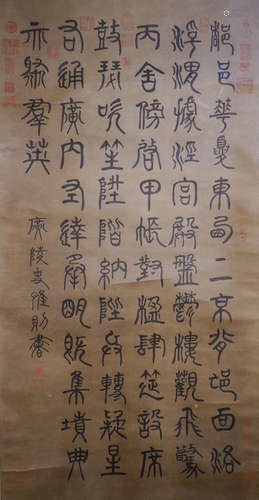 都邑華夏東西二京背邙面洛
浮渭據涇宮殿盤鬱樓觀飛驚
丙舍傍啟甲帳對楹肆筵設席
鼓瑟吹笙陞階納陛弁轉疑星
右通廣內左達承明既集墳典
亦聚群英
廣陵史惟則書